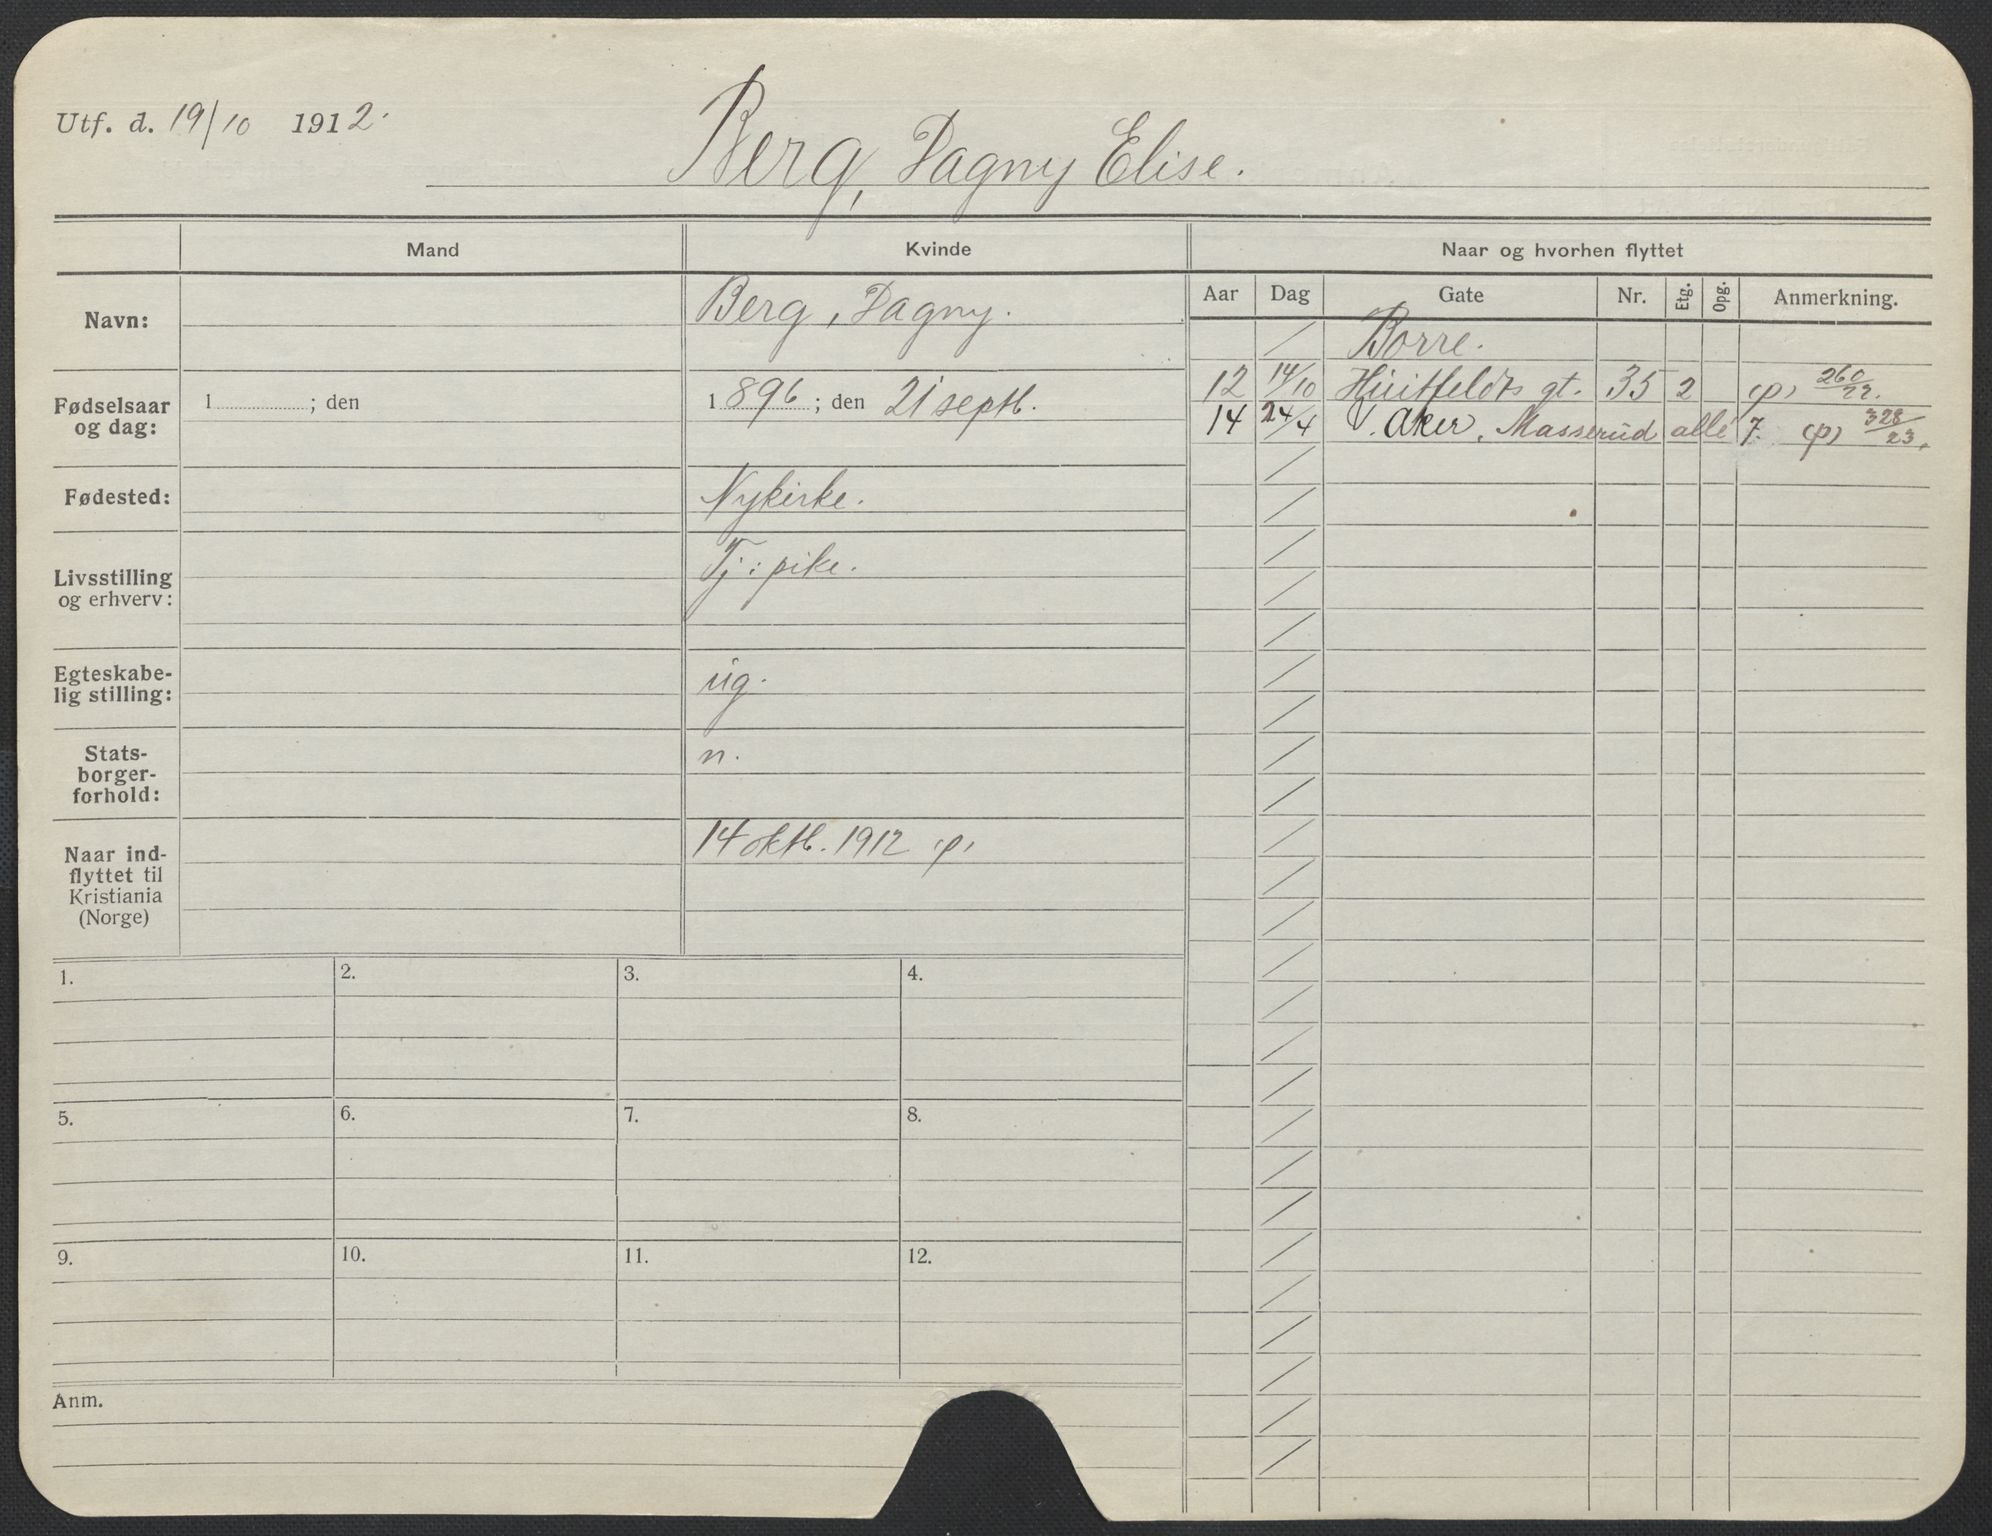 Utf. d. 19/10 1912.
Berg, Dagny Elise.
Mand
Kvinde
Naar og hvorhen flyttet
Aar Dag Gate Nr. Etg. Opg. Anmerkning.
Navn: Berg, Dagny.
Fødselsaar
og dag:
1 ; den
1896; den 21 septb.
Fødested: Nykirke.
Livsstilling
og erhverv:
Tj: pike.
Egteskabe-
lig stilling:
ug.
Stats-
borger-
forhold:
n.
Naar ind-
flyttet til
Kristiania
(Norge)
14 oktb. 1912 (p)
Borre.
12 14/10 Huitfeldts gt. 35 2 (p) 260/22.
14 24/4 V. Aker, Masserud allé 7. (p) 328/23.
1. 2. 3. 4.
5. 6. 7. 8.
9. 10. 11. 12.
Anm.